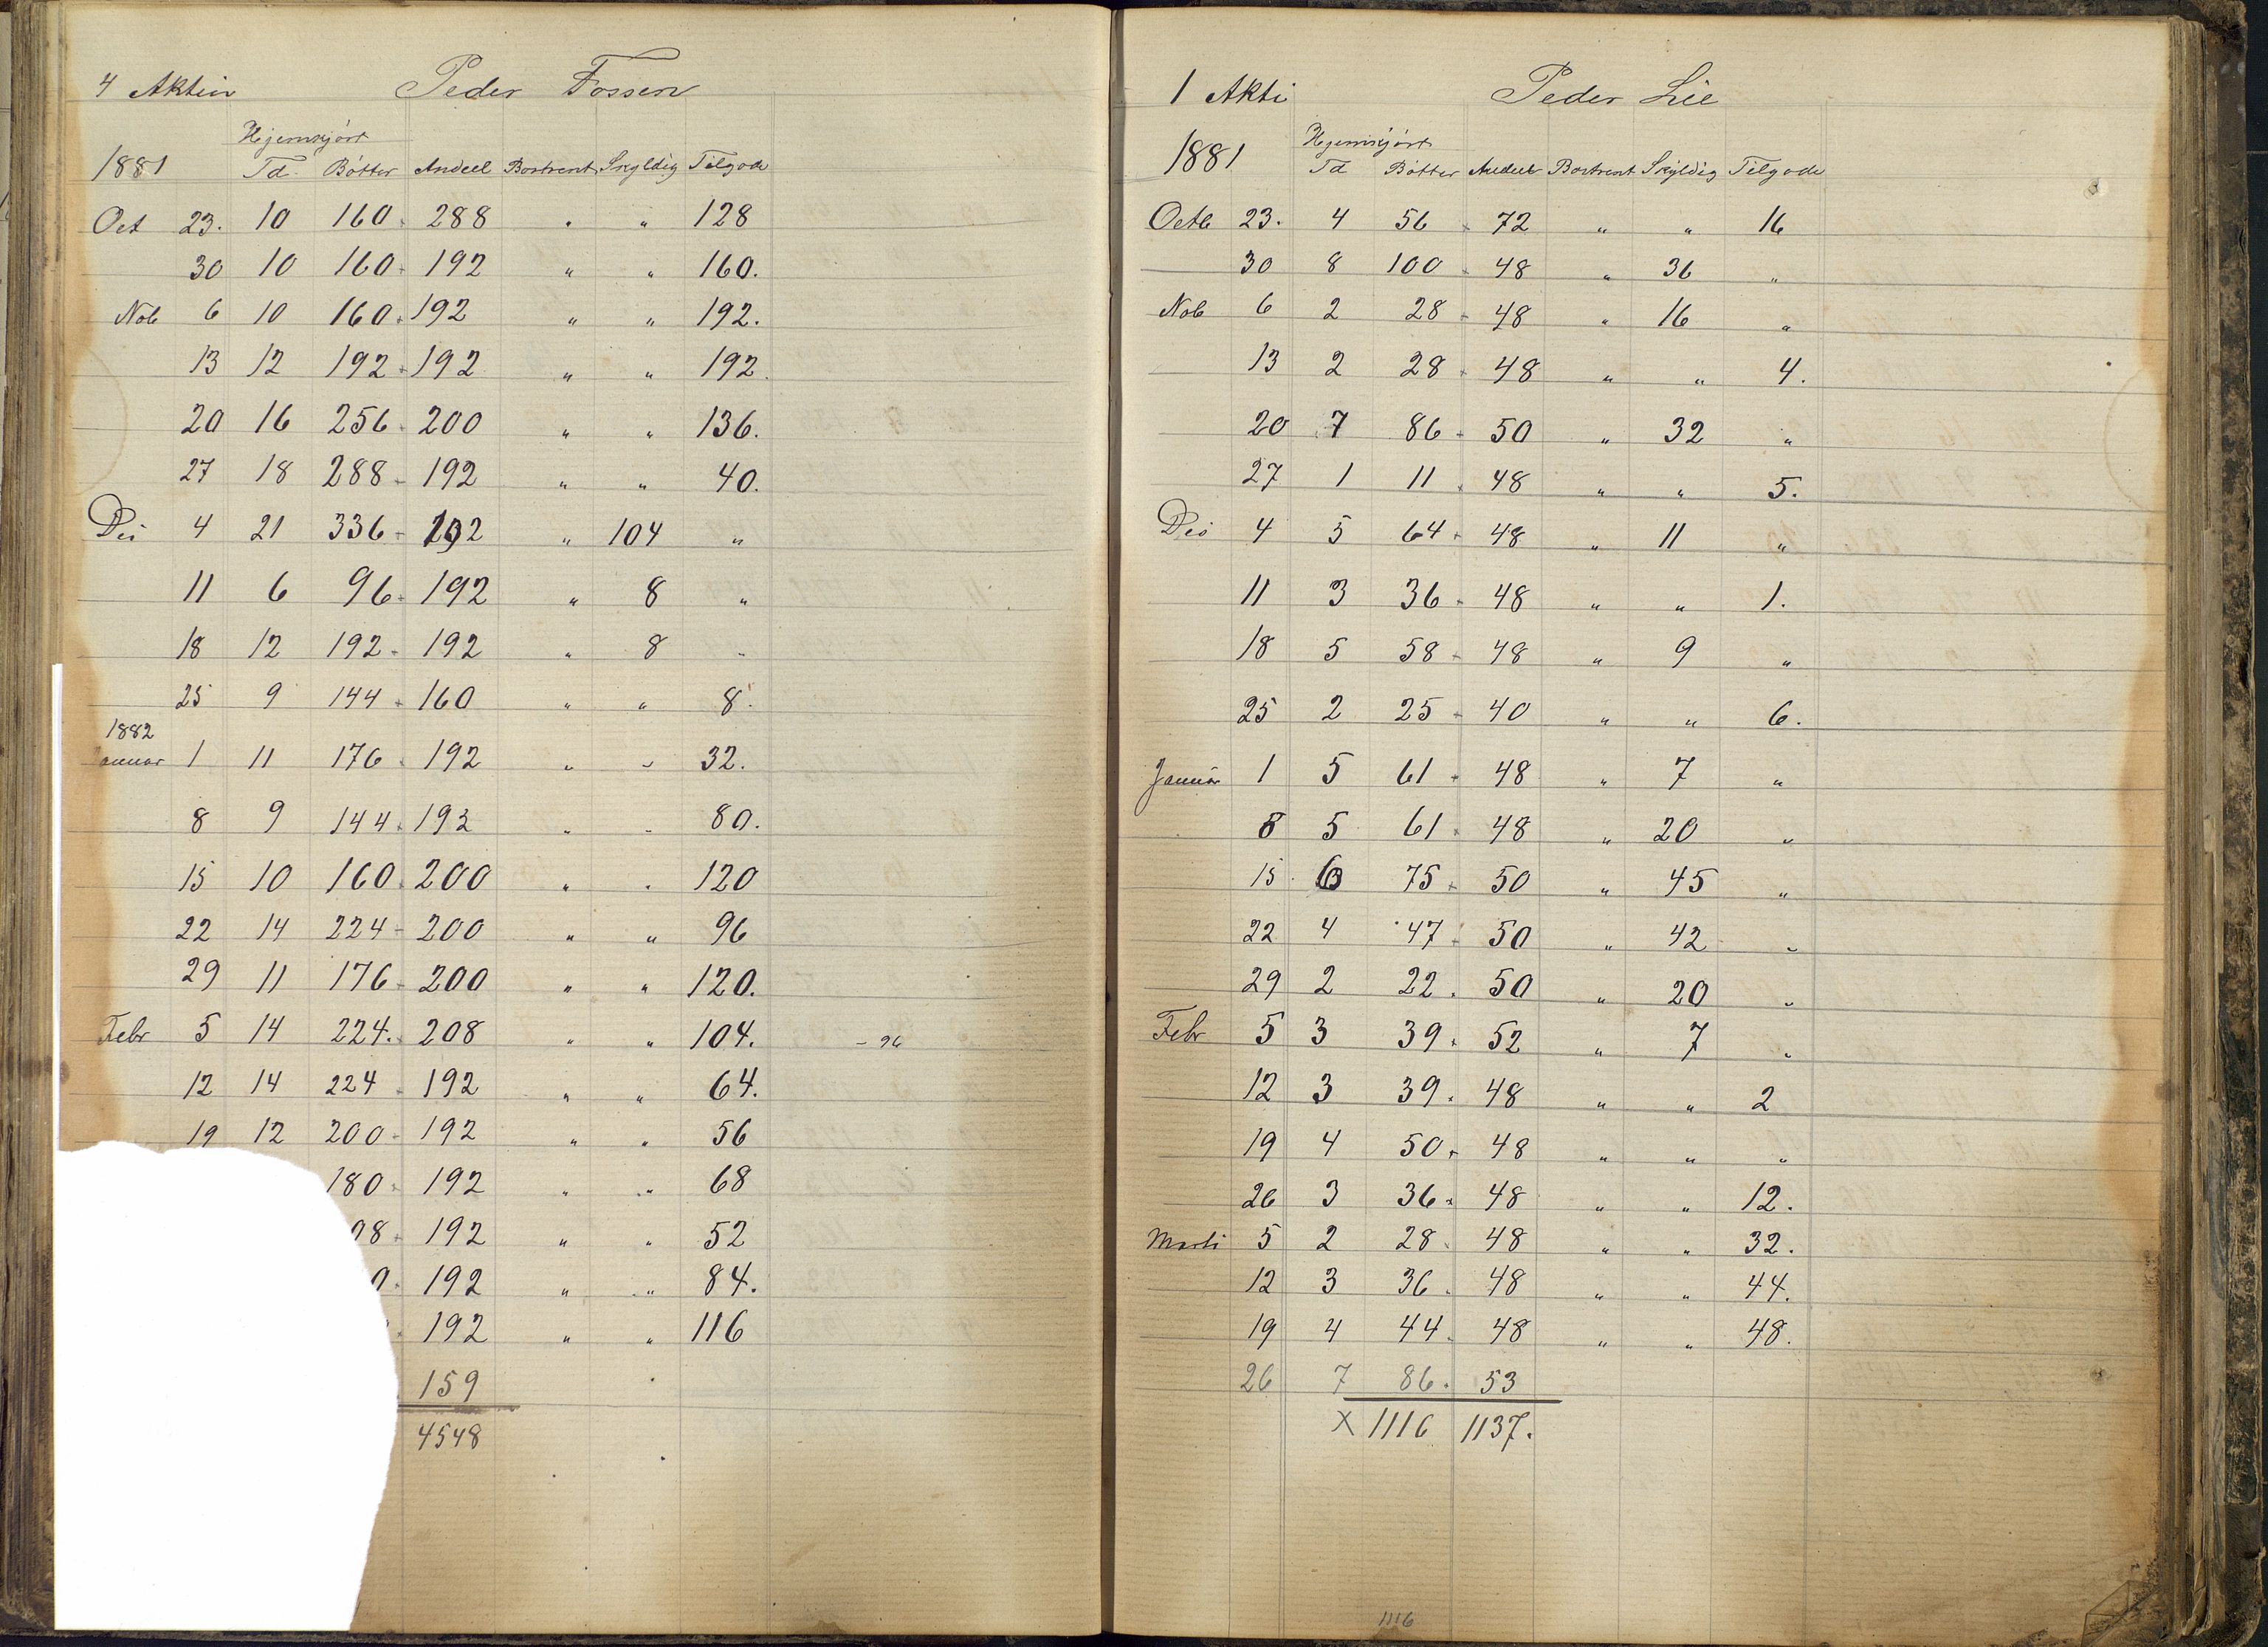 4 Aktier Peder Fossen
Hjemkjört
1881 Td. Bötter Andeel Bortrent Skyldig Tilgode
Oct 23. 10 160 288 " " 128
30 10 160 192 " " 160.
Nob 6 10 160 192 " " 192.
13 12 192 192 " " 192.
20 16 256 200 " " 136.
27 18 288 192 " " 40.
De 4 21 336 192 " 104 "
11 6 96 192 " 8 "
18 12 192 192 " 8 "
25 9 144 160 " " 8.
1882
anuar 1 11 176 192 " " 32.
8 9 144 192 " " 80.
15 10 160 200 " " 120
22 14 224 200 " " 96
29 11 176 200 " " 120.
Febr 5 14 224. 208 " " 104. - 96
12 14 224 192 " " 64.
19 12 200 192 " " 56
180 192 " " 68
08 192 " " 52
0 192 " " 84.
192 " " 116
159
4548
1 Akti Peder Lie
Hjemkjört
1881 Td Bötter Andeel Bortrent Skyldig Tilgode
Octb 23. 4 56 72 " " 16
30 8 100 48 " 36 "
Nob 6 2 28 48 " 16 "
13 2 28 48 " " 4.
20 7 86 50 " 32 "
27 1 11 48 " " 5.
Des 4 5 64 48 " 11 "
11 3 36 48 " " 1.
18 5 58 48 " 9 "
25 2 25 40 " " 6.
Januar 1 5 61 48 " 7 "
8 5 61 48 " 20 "
15 6 75 50 " 45 "
22 4 47 50 " 42 "
29 2 22 50 " 20 "
Febr 5 3 39 52 " 7 "
12 3 39 48 " " 2
19 4 50 48 " " "
26 3 36 48 " " 12.
Marti 5 2 28 48 " " 32.
12 3 36 48 " " 44.
19 4 44 48 " " 48.
26 7 86 53
X 1116 1137.
1116